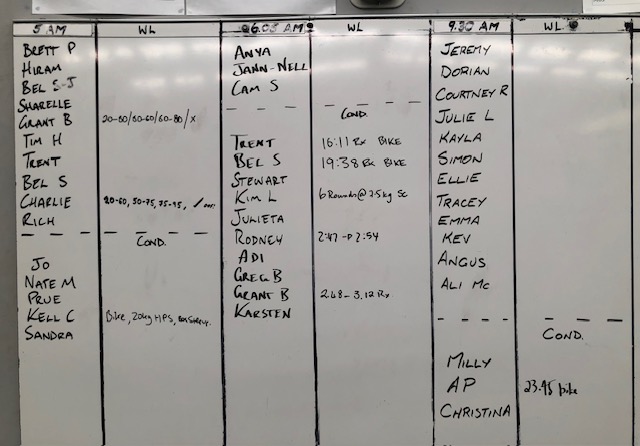 5 AM WL
BRETT P
HIRAM
BEL S-J
SHARELLE
GRANT B 20-60/60-60/60-80/X
TIM H
TRENT
BEL S
CHARLIE 20-60, 50-75, 75-95,
RICH
COND.
JO
NATE M
PRUE
KELL C Bike, 20kg HPS,
SANDRA
6.05 AM WL
ANYA
JANN-NELL
CAM S
COND.
TRENT 16:11 Rx BIKE
BEL S 19:38 Rx BIKE
STEWART
KIM L 6 Rounds @ 7.5kg Sc
JULIETA
RODNEY 2:47 - 2:54
ADI
GREG B
GRANT B 2.48 - 3.12 Rx
KARSTEN
9.30 AM WL
JEREMY
DORIAN
COURTNEY R
JULIE L
KAYLA
SIMON
ELLIE
TRACEY
EMMA
KEV
ANGUS
ALI MC
COND.
MILLY
AP 23.45 bike
CHRISTINA